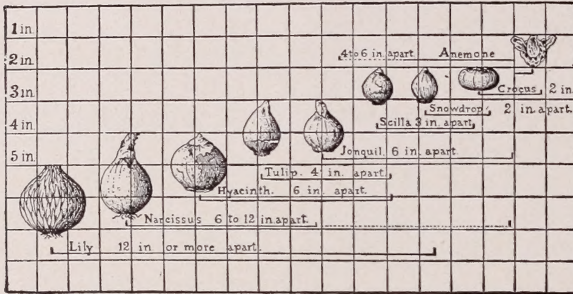 1 in.
4 to 6 in. apart. Anemone
2 in.
3 in. Crocus 2 in.
Snowdrop 2 in. apart.
Scilla 3 in. apart.
4 in.
Jonquil. 6 in. apart.
5 in.
Tulip. 4 in. apart.
Hyacinth. 6 in. apart.
Narcissus 6 to 12 in. apart.
Lily 12 in or more apart.